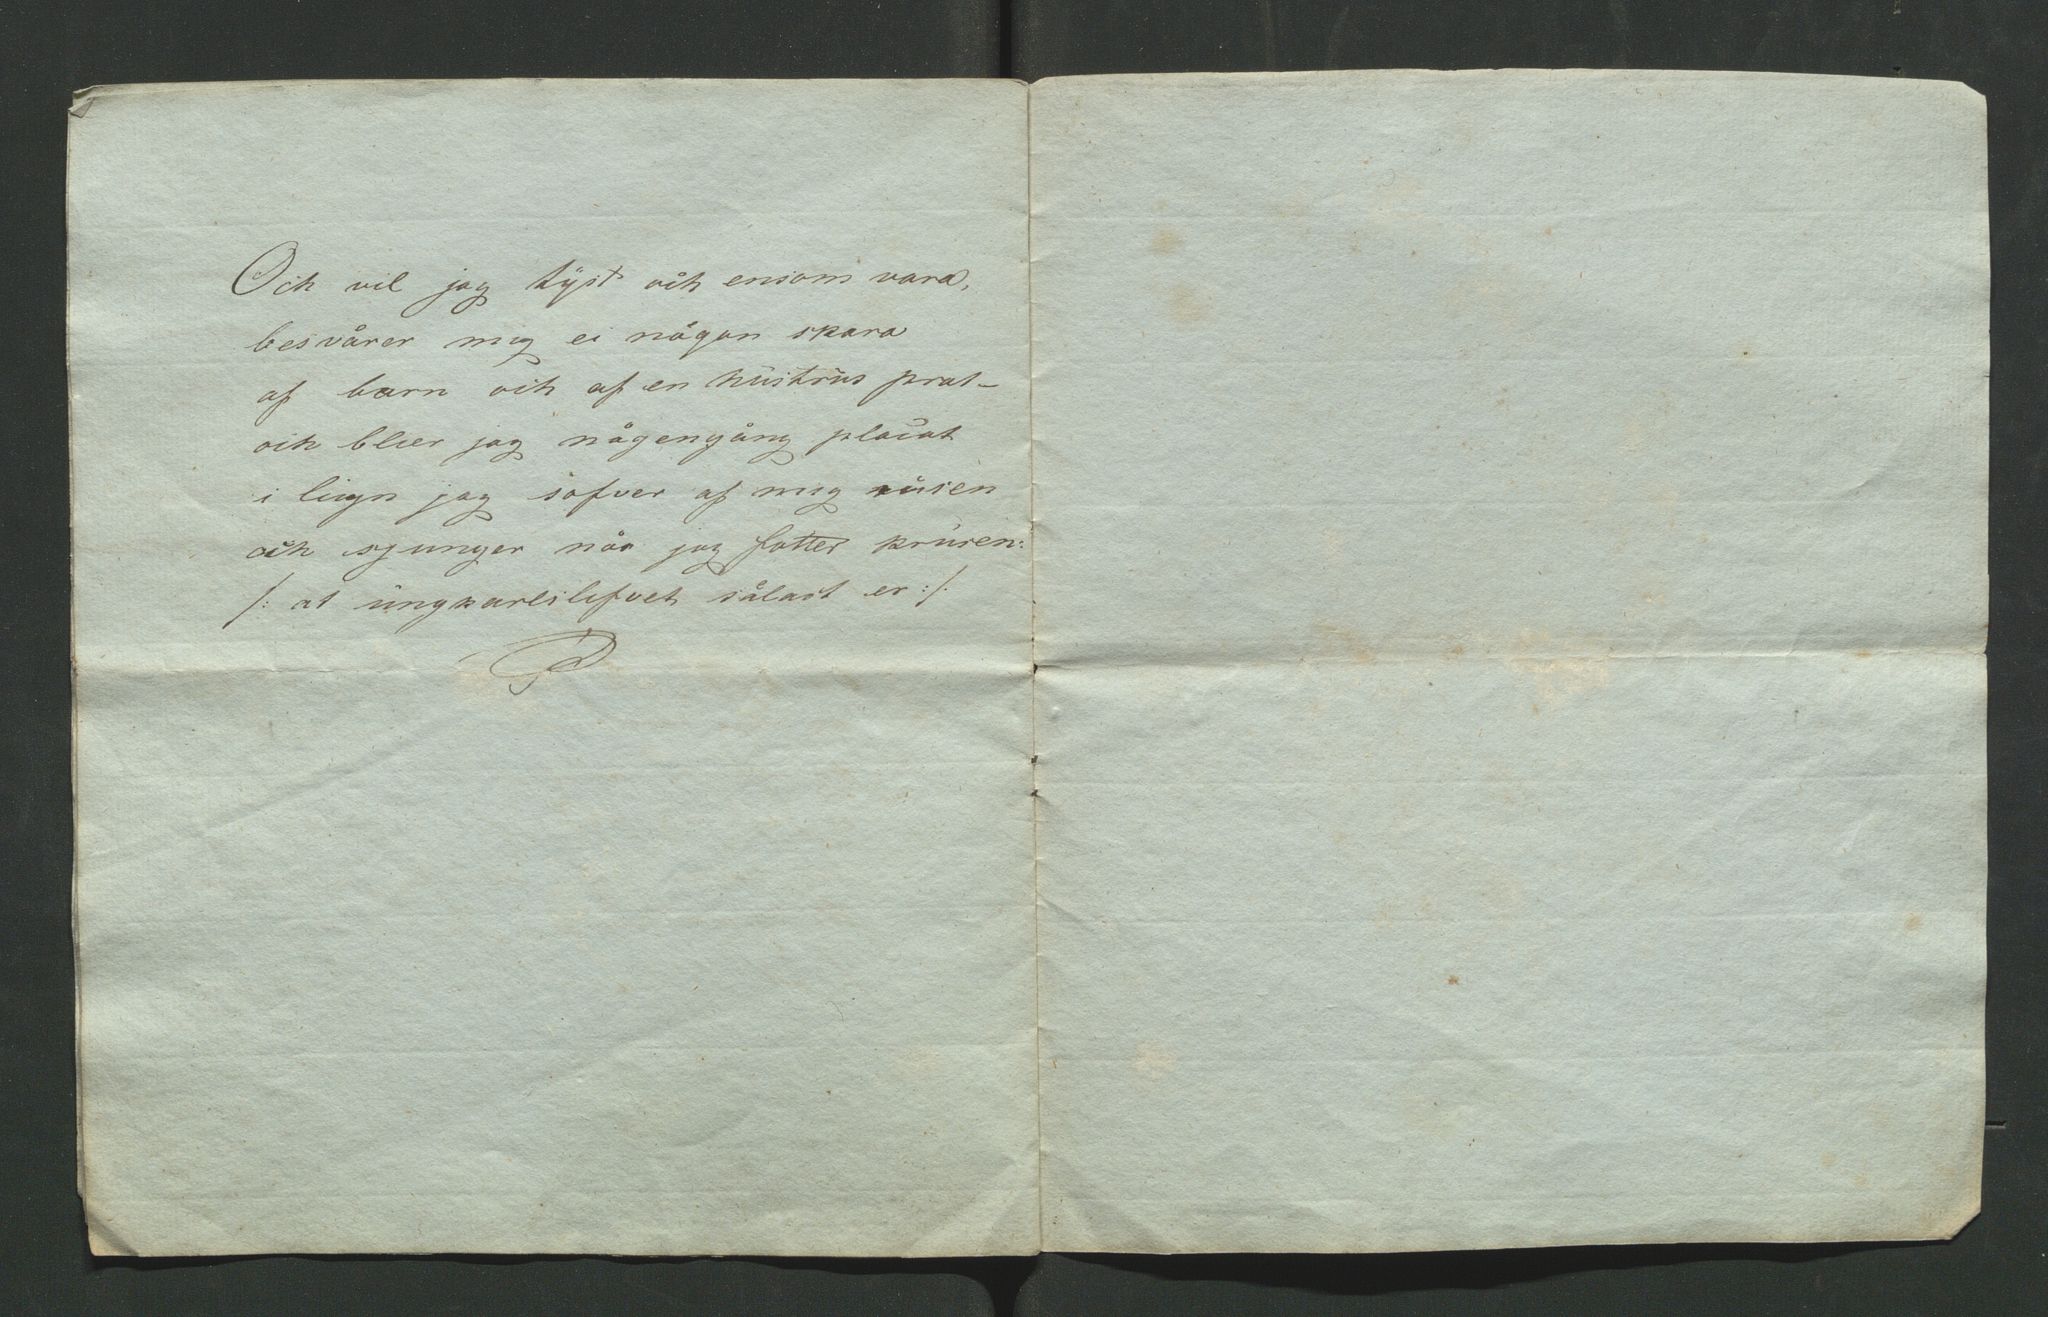 Och vil jag tÿst och ensom vara,
besvårer mig ei någon skara
af barn och af en hústrús prat –
och blier jag någengång placat
i lugn jag sofver af mig rúsen
och sjunger når jag fatter krúsen:
/: at úngkarlslifvet sålast er :/